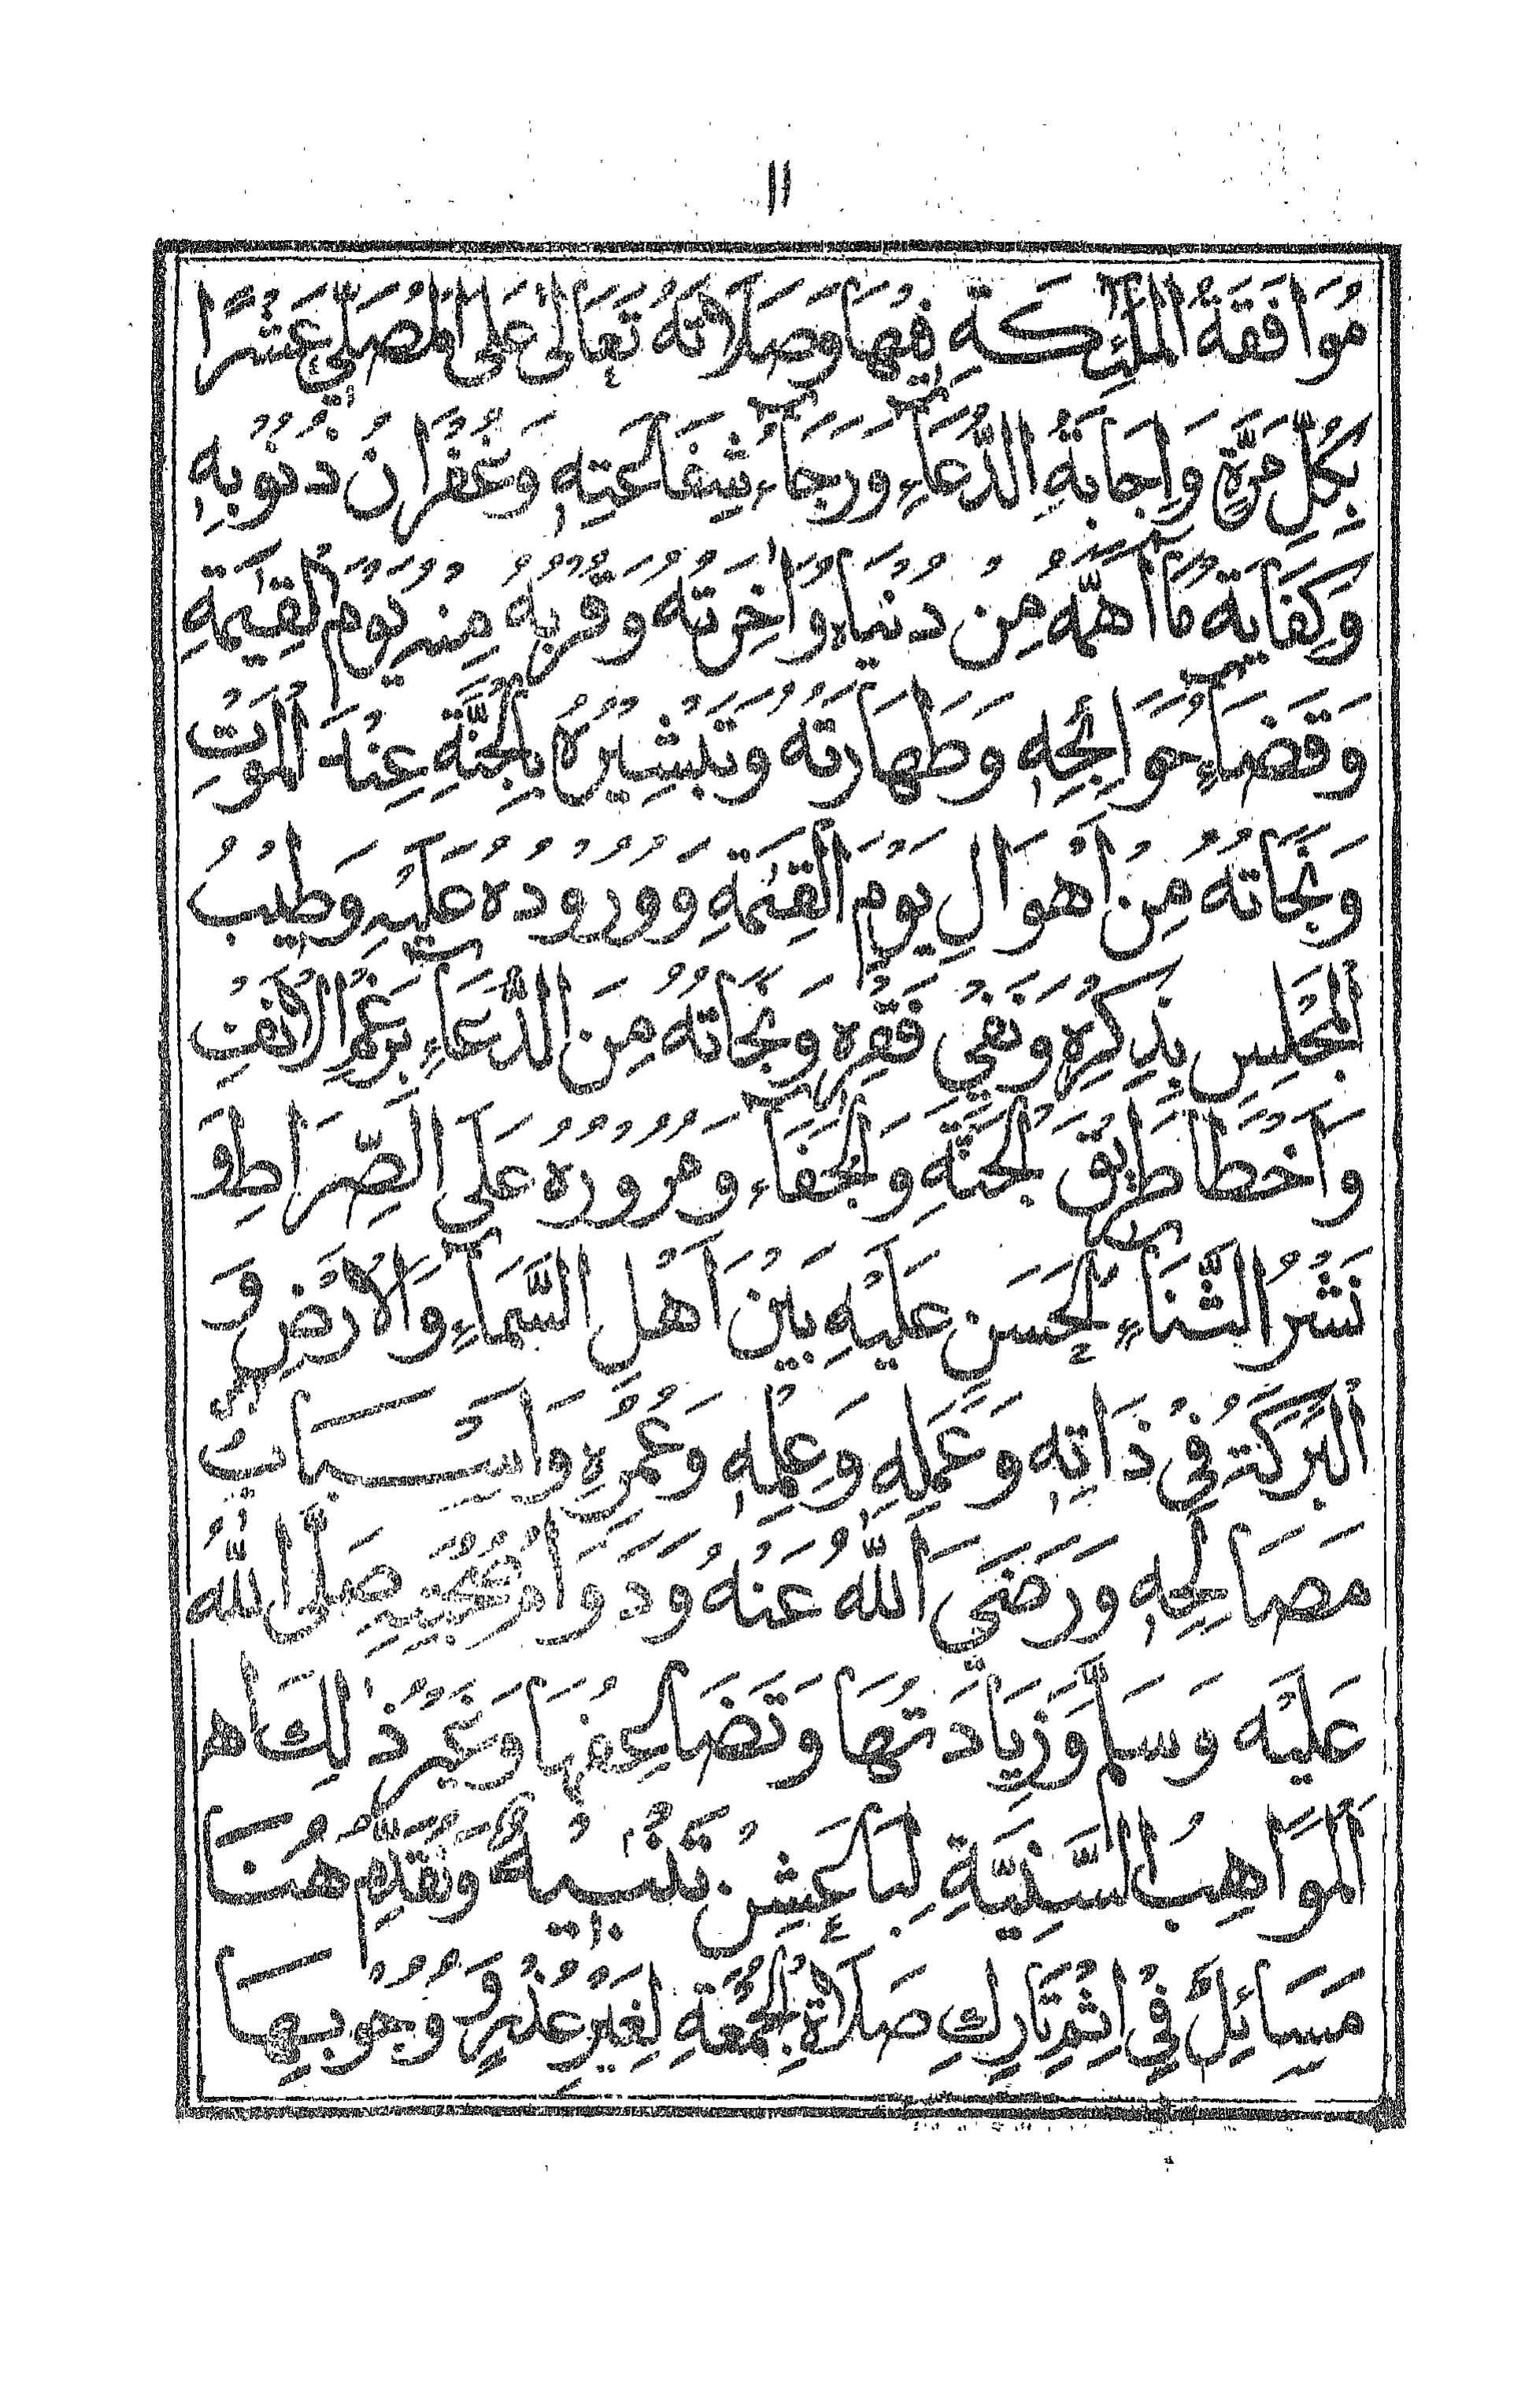 ١١
مُوَافَقَةُ الْمَلٰئِكَةِ فِيْهَا وَصَلَاتُهُ تَعَالٰى عَلَى الْمُصَلِّيْ عَشْرًا
بِكُلِّ مَرَّةٍ وَاِجَابَةُ الدُّعَآءِ وَرَجَآءُ شَفَاعَتِهٖ وَغُفْرَانُ ذُنُوْبِهٖ
وَكِفَايَةُ مَا اَهَمَّهُ مِنْ دُنْيَاهُ وَاٰخِرَتِهُ وَقُرْبُهُ مِنْهُ يَوْمَ الْقِيٰمَةِ
وَقَضَآءُ حَوَائِجِهٖ وَطَهَارَتُهُ وَتَبْشِيْرُهُ بِالْجَنَّةِ عِنْدَ الْمَوْتِ
وَنَجَاتُهُ مِنْ اَهْوَالِ يَوْمَ الْقِيٰمَةِ وَوُرُوْدُهُ عَلَيْهِ وَطِيْبُ
الْمَجْلِسِ بِذِكْرِهٖ وَنَفْيُ فَقْرِهٖ وَنَجَاتُهُ مِنَ الدُّعَآءِ بِرَغْمِ الْاَنْفِ
وَاَخْطَا طَرِيْقَ الْجَنَّةِ وَالْجَفَآءِ وَمُرُوْرُهُ عَلَى الصِّرَاطِ وَ
نَشْرُ الثَّنَآءِ الْحَسَنِ عَلَيْهِ بَيْنَ اَهْلِ السَّمَآءِ وَالْاَرْضِ وَ
الْبَرَكَةُ فِيْ ذَاتِهٖ وَعَمَلِهٖ وَعِلْمِهٖ وَعُمُرِهٖ وَاَسْبَابِ
مَصَالِحِهٖ وَرَضِيَ اللّٰهُ عَنْهُ وَدَوَامُ مَحَبَّتِهٖ صَلَّى اللّٰهُ
عَلَيْهِ وَسَلَّمَ وَزِيَادَتُهَا وَتَضَاعُفُهَا وَغَيْرُ ذٰلِكَ اه
اَلْمَوَاهِبُ السَّنِيَّةِ لِبَاعِشِنْ تَنْبِيْهٌ وَنُقَدِّمُ هُنَا
مَسَائِلَ فِيْ اِثْمِ تَارِكِ صَلَاةِ الْجُمُعَةِ لِغَيْرِ عُذْرٍ وَّ وُجُوْبِهَا